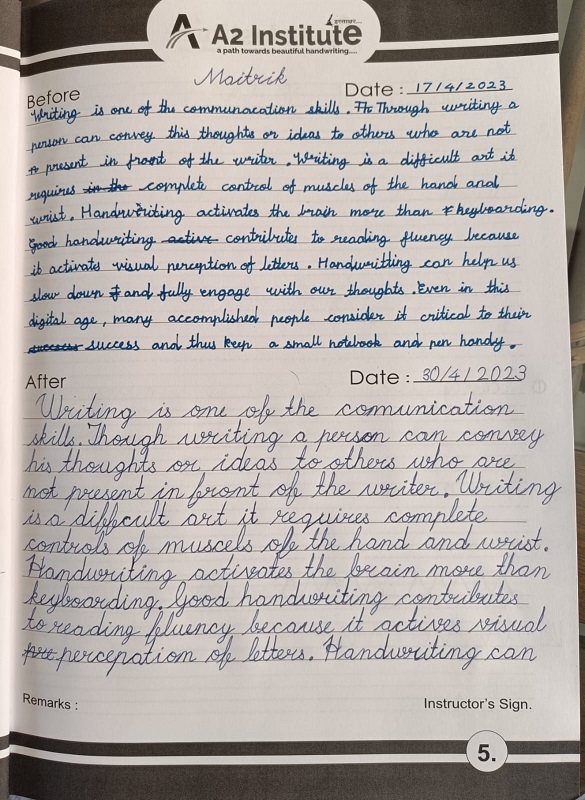 A2 Institute
a path towards beautiful handwriting....
Maitrik
Before
Date : 17/4/2023
Writing is one of the communacation skills. Through writing a
person can convey this thoughts or ideas to others who are not
present in front of the writer. Writing is a difficult art it
requires in the complete control of muscles of the hand and
wrist. Handwriting activates the brain more than keyboarding.
Good handwriting active contributes to reading fluency because
it activats visual perception of letters. Handwritting can help us
slow down and fully engage with our thoughts. Even in this
digital age, many accomplished people consider it critical to their
success success and thus keep a small notebook and pen handy.
After
Date : 30/4/2023
Writing is one of the comunication
skills. Though writing a person can convey
his thoughts or ideas to others who are
not present in front of the writer. Writing
is a diffcult art it requires complete
controls of muscels of the hand and wrist.
Handwriting activates the brain more than
keyboarding. Good handwriting contributes
to reading fluency because it actives visual
percepation of letters. Handwriting can
Remarks :
Instructor's Sign.
5.